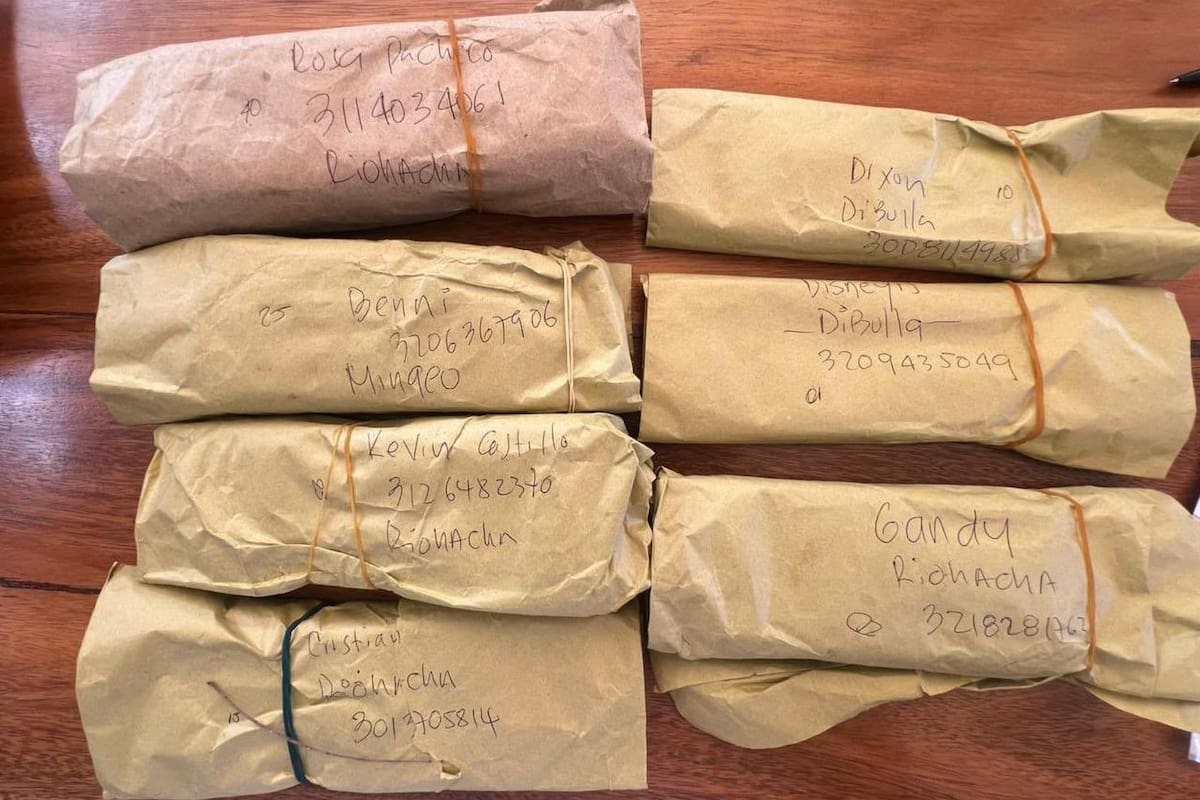 Rosa Pacheco
40
3114034061
RiohAcha
Dixon
10
DiBulla
3008114988
Benni
25
3206367906
Mingeo
Disneyis
-DiBulla-
3209435049
Kevin Castillo
3126482370
RiohAcha
Gandy
RiohAcha
3218281762
Cristian
RiohAcha
10
3013705814